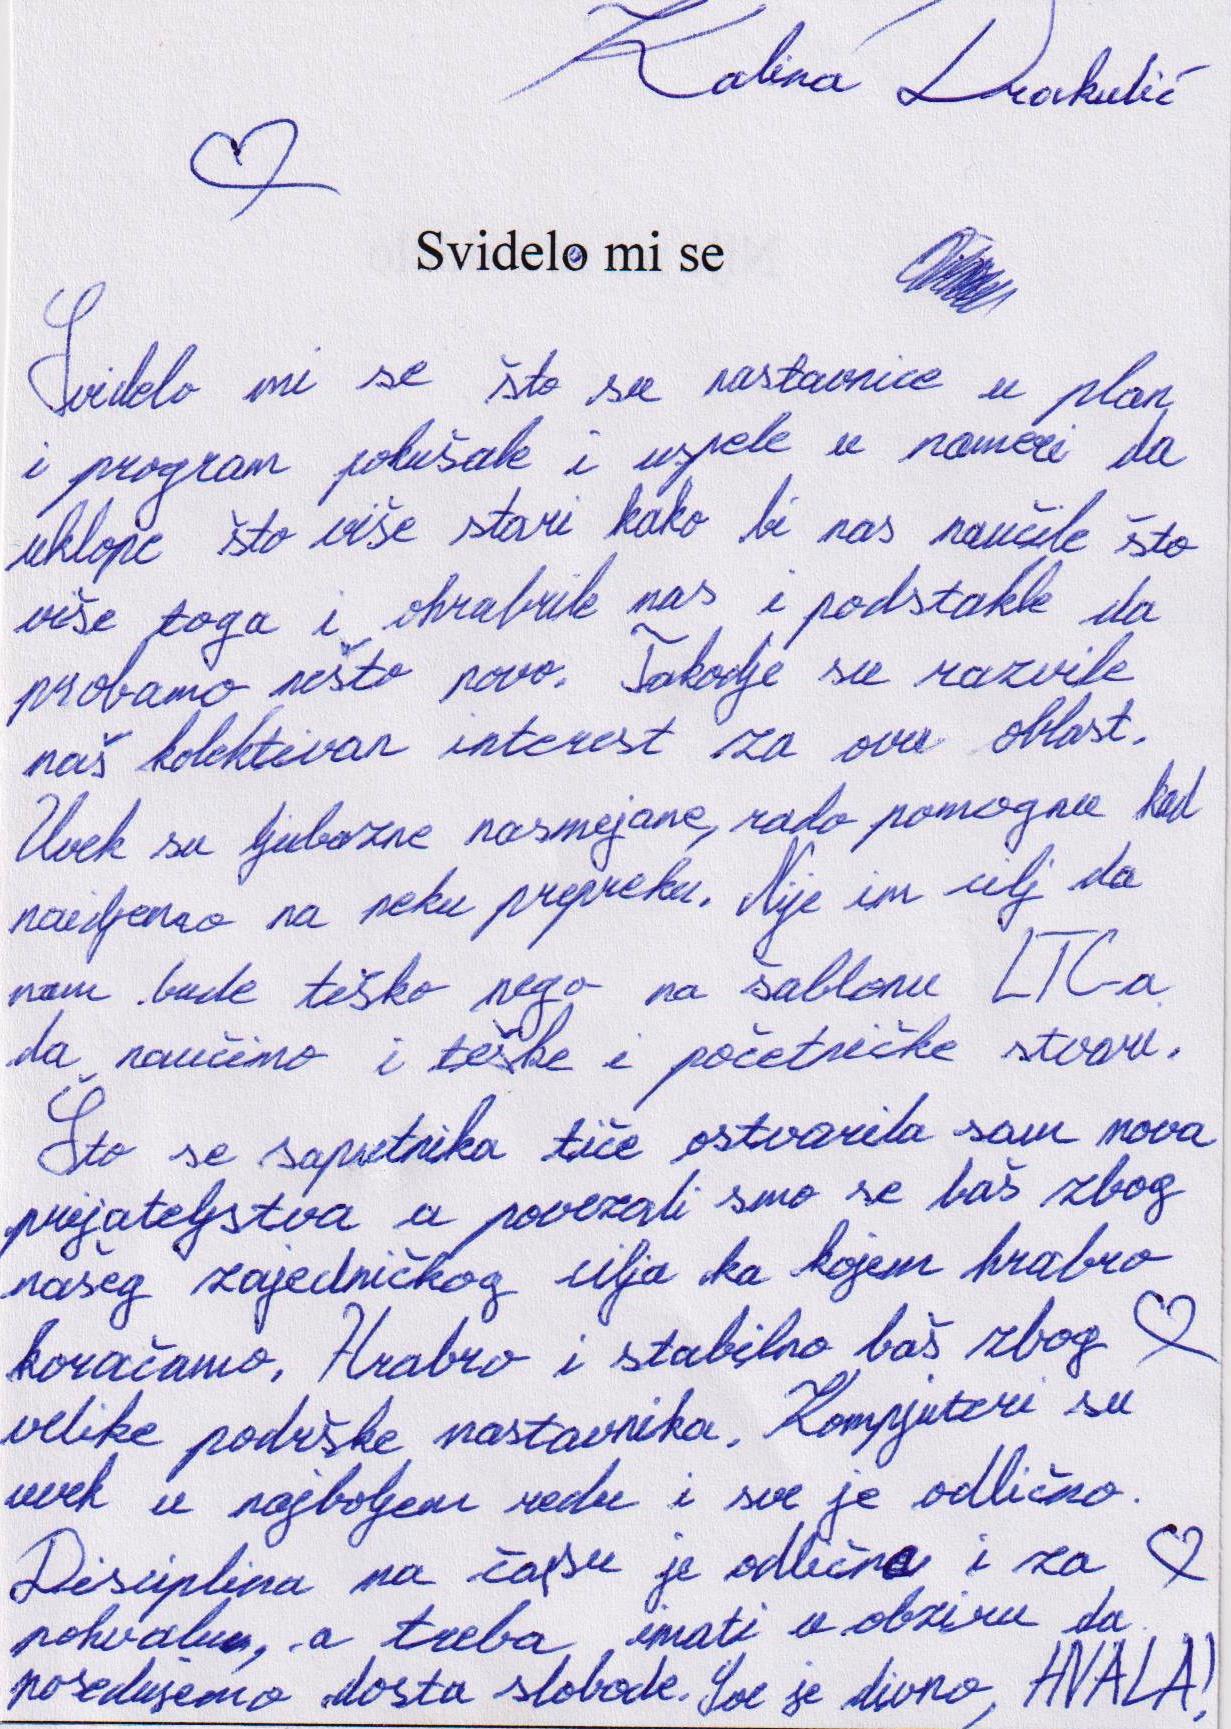 Kalina Drakulić
Svidelo mi se
Svidelo mi se što su nastavnice u plan
i program pokušale i uspele u nameri da
uklope što više stari kako bi nas naučile što
više toga i ohrabrile nas i podstakle da
probamo nešto novo. Takodje su razvile
naš kolektivan interest za ovu oblast.
Uvek su ljubazne nasmejane, rado pomognu kad
naidjemo na neku prepreku. Nije im cilj da
nam bude teško nego na šablonu LTC-a
da naučimo i teške i početničke stvari.
Što se saputnika tiče ostvarila sam nova
prijateljstva a povezali smo se baš zbog
našeg zajedničkog cilja ka kojem hrabro
koračamo. Hrabro i stabilno baš zbog
velike podrške nastavnika. Kompjuteri su
uvek u najboljem redu i sve je odlično.
Disciplina na času je odlična i za
pohvalu, a treba imati u obziru da
posedujemo dosta slobode. Sve je divno, HVALA!